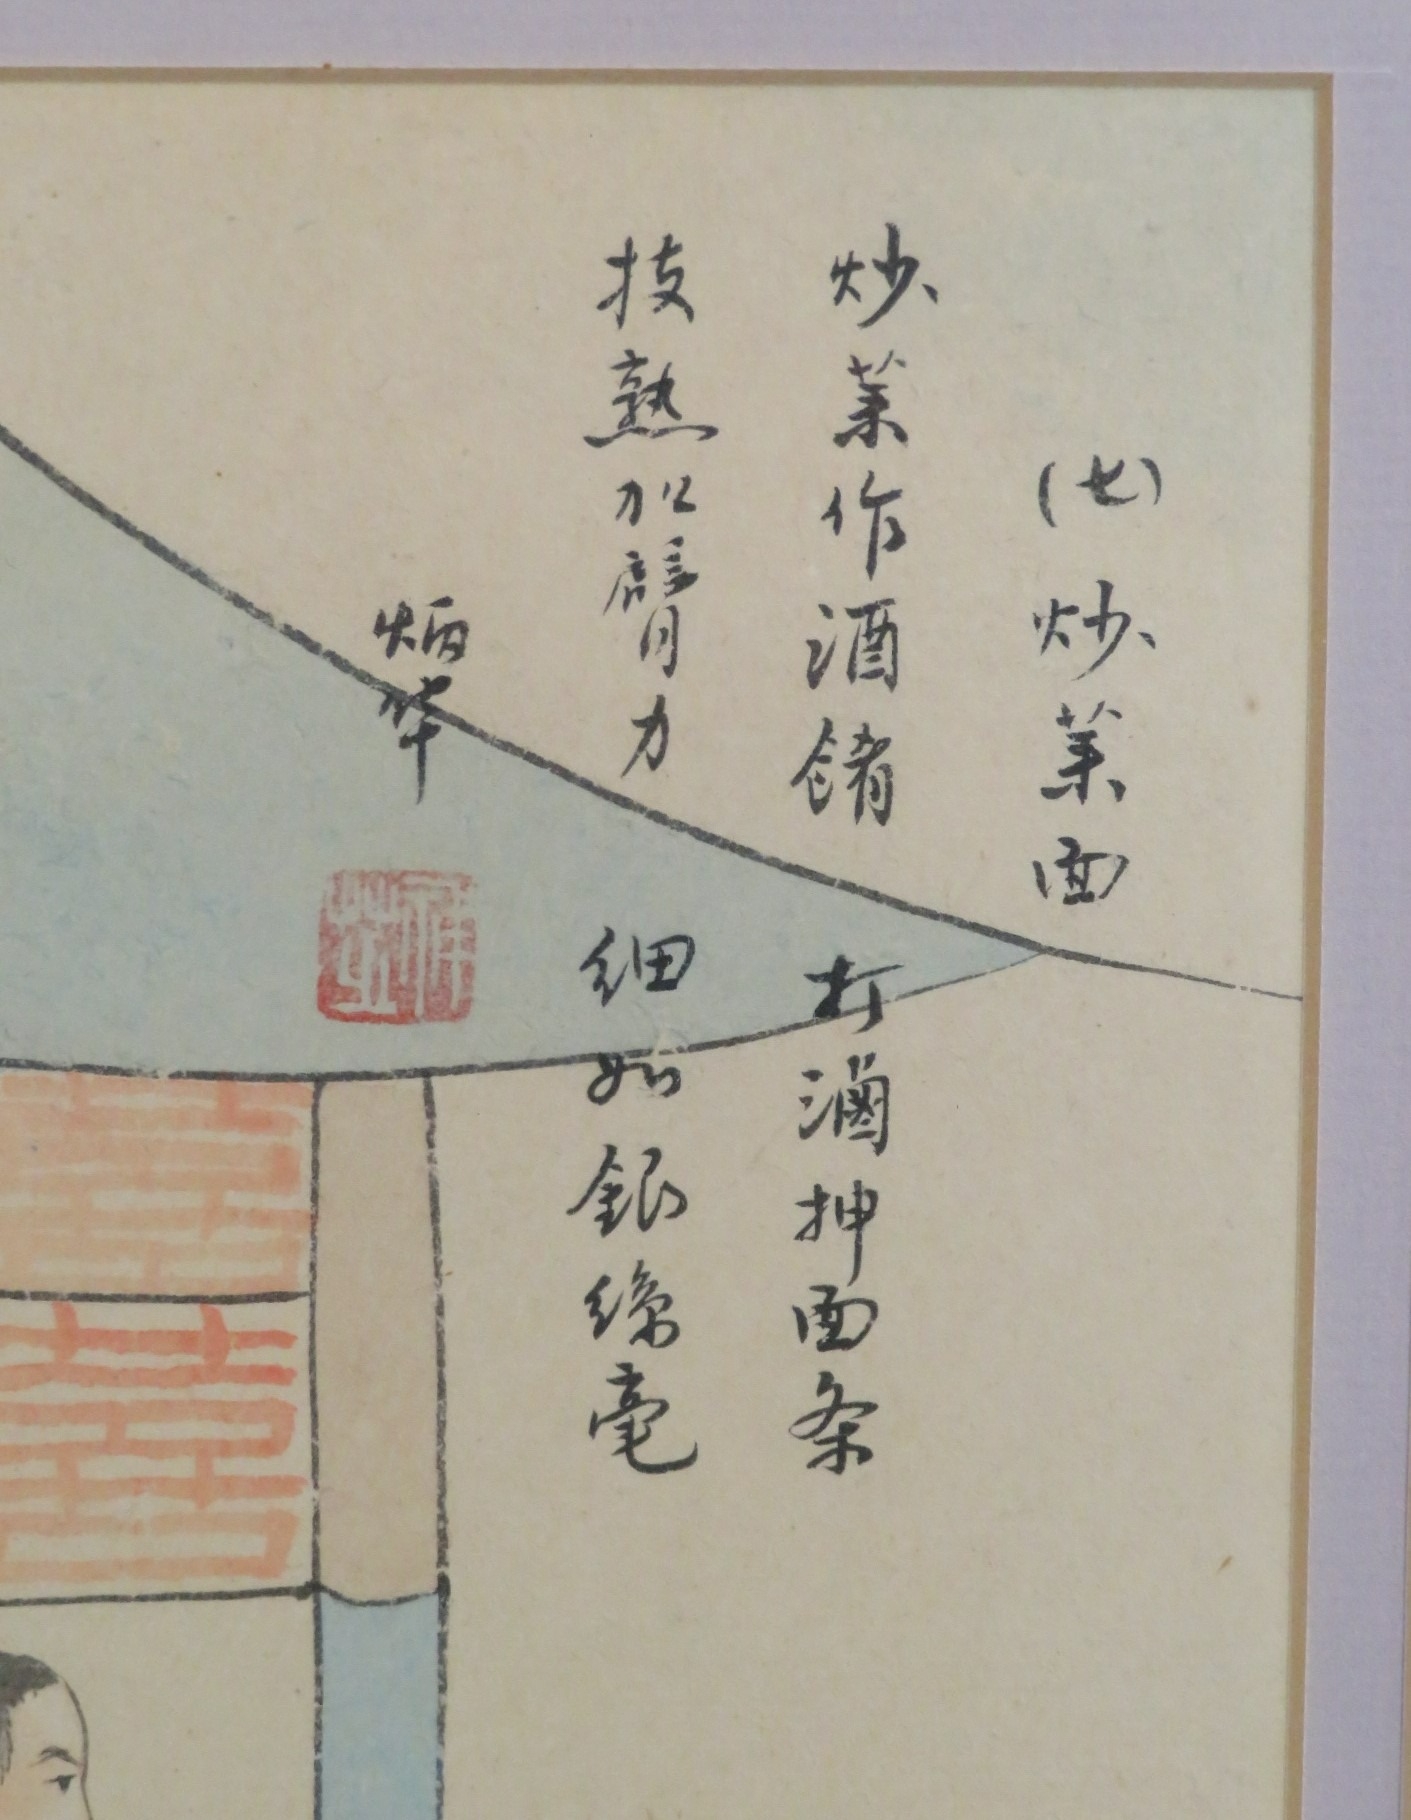 (七)炒菜面
炒菜作酒餚 打滷抻面条
技熟加臂力 细如銀絲毫
炳华